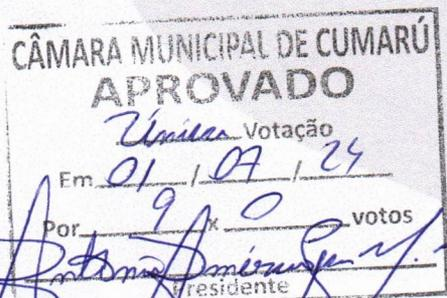 CÂMARA MUNICIPAL DE CUMARÚ
APROVADO
Única Votação
Em 01 / 07 / 24
Por 9 x 0 votos
Presidente